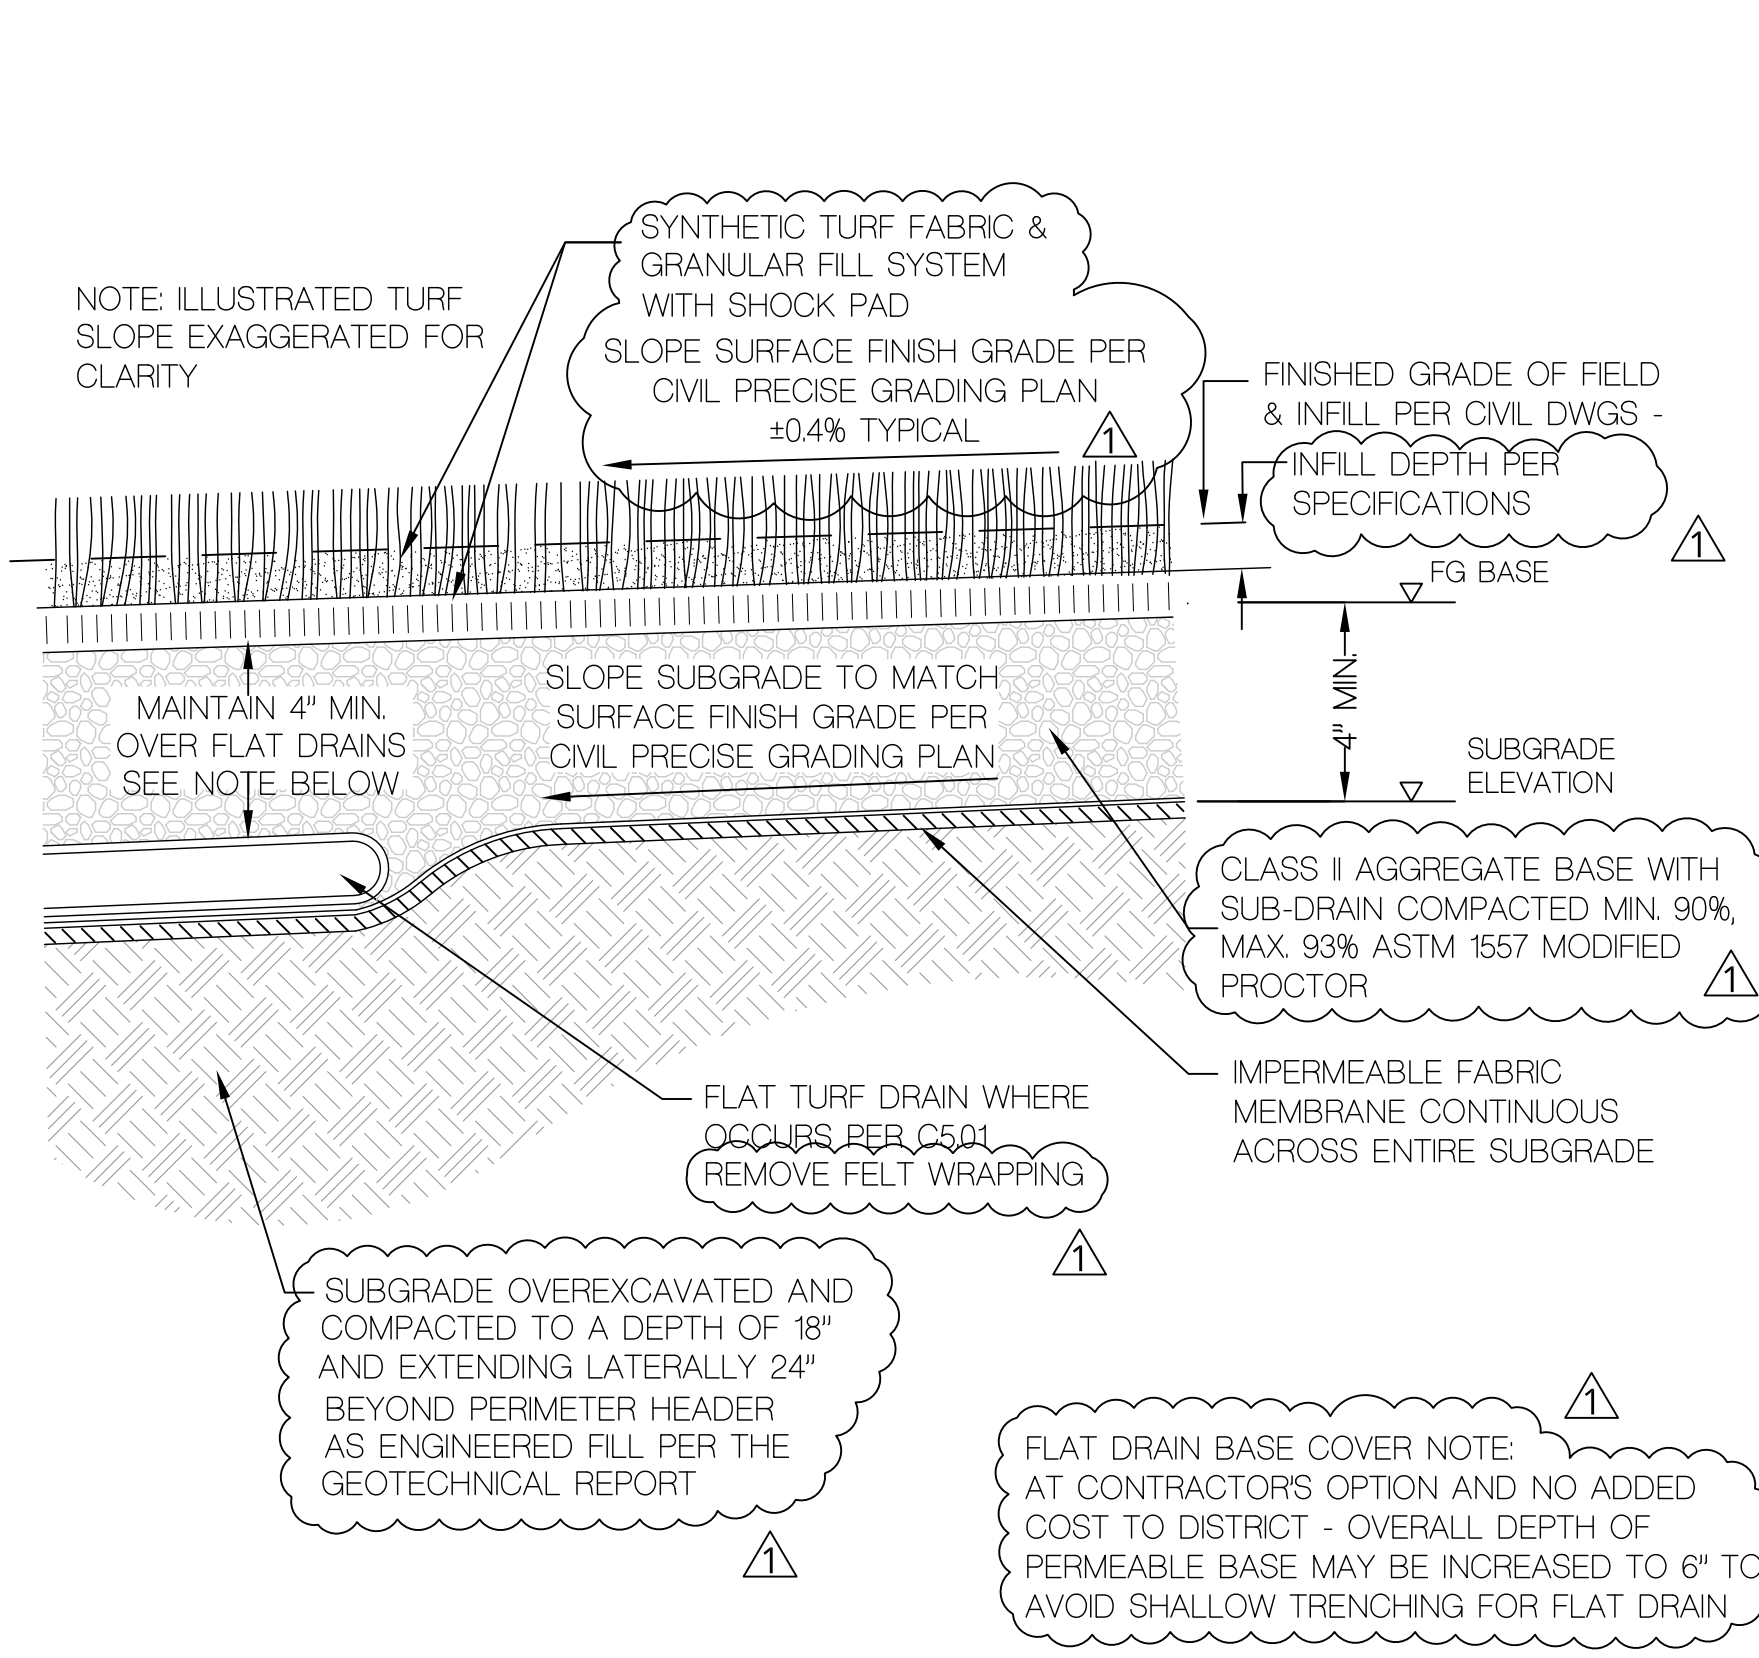 SYNTHETIC TURF FABRIC &
GRANULAR FILL SYSTEM
WITH SHOCK PAD
SLOPE SURFACE FINISH GRADE PER
CIVIL PRECISE GRADING PLAN
±0.4% TYPICAL
1
NOTE: ILLUSTRATED TURF
SLOPE EXAGGERATED FOR
CLARITY
FINISHED GRADE OF FIELD
& INFILL PER CIVIL DWGS -
INFILL DEPTH PER
SPECIFICATIONS
1
FG BASE
4" MIN.
SUBGRADE
ELEVATION
MAINTAIN 4" MIN.
OVER FLAT DRAINS
SEE NOTE BELOW
SLOPE SUBGRADE TO MATCH
SURFACE FINISH GRADE PER
CIVIL PRECISE GRADING PLAN
CLASS II AGGREGATE BASE WITH
SUB-DRAIN COMPACTED MIN. 90%,
MAX. 93% ASTM 1557 MODIFIED
PROCTOR
1
IMPERMEABLE FABRIC
MEMBRANE CONTINUOUS
ACROSS ENTIRE SUBGRADE
FLAT TURF DRAIN WHERE
OCCURS PER C5.01
REMOVE FELT WRAPPING
1
SUBGRADE OVEREXCAVATED AND
COMPACTED TO A DEPTH OF 18"
AND EXTENDING LATERALLY 24"
BEYOND PERIMETER HEADER
AS ENGINEERED FILL PER THE
GEOTECHNICAL REPORT
1
1
FLAT DRAIN BASE COVER NOTE:
AT CONTRACTOR'S OPTION AND NO ADDED
COST TO DISTRICT - OVERALL DEPTH OF
PERMEABLE BASE MAY BE INCREASED TO 6" TO
AVOID SHALLOW TRENCHING FOR FLAT DRAIN